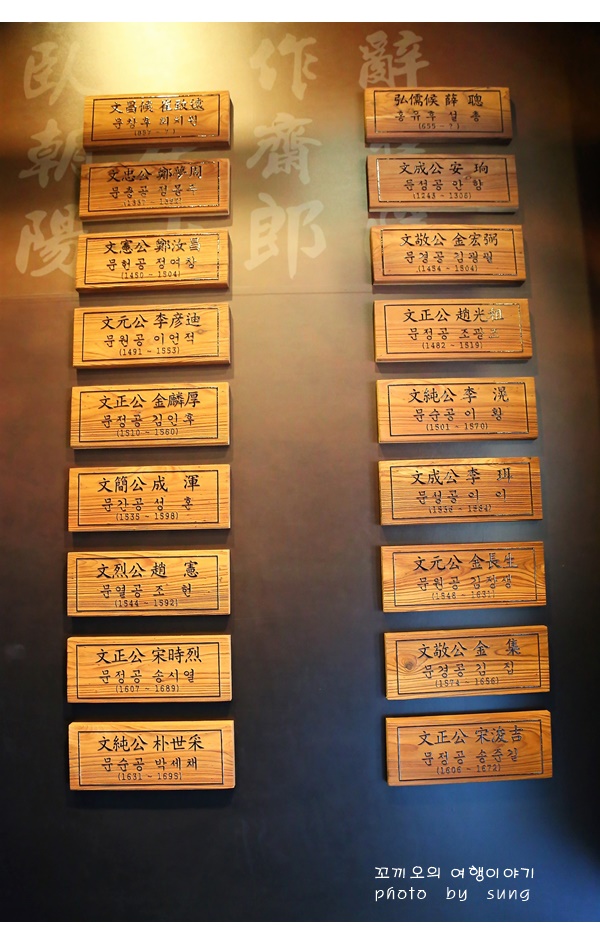 臥朝陽
作齋郎
辭
文昌候 崔致遠
문창후 최치원
(857 - ?)
文忠公 鄭夢周
문충공 정몽주
(1337 - 1392)
文憲公 鄭汝昌
문헌공 정여창
(1450 - 1504)
文元公 李彦迪
문원공 이언적
(1491 - 1553)
文正公 金麟厚
문정공 김인후
(1510 - 1560)
文簡公 成 渾
문간공 성 혼
(1535 - 1598)
文烈公 趙 憲
문열공 조 헌
(1544 - 1592)
文正公 宋時烈
문정공 송시열
(1607 - 1689)
文純公 朴世采
문순공 박세채
(1631 - 1695)
弘儒候 薛 聰
홍유후 설 총
(655 - ?)
文成公 安 珦
문성공 안 향
(1243 - 1306)
文敬公 金宏弼
문경공 김굉필
(1454 - 1504)
文正公 趙光祖
문정공 조광조
(1482 - 1519)
文純公 李 滉
문순공 이 황
(1501 - 1570)
文成公 李 珥
문성공 이 이
(1536 - 1584)
文元公 金長生
문원공 김장생
(1548 - 1631)
文敬公 金 集
문경공 김 집
(1574 - 1656)
文正公 宋浚吉
문정공 송준길
(1606 - 1672)
꼬끼오의 여행이야기
photo by sung